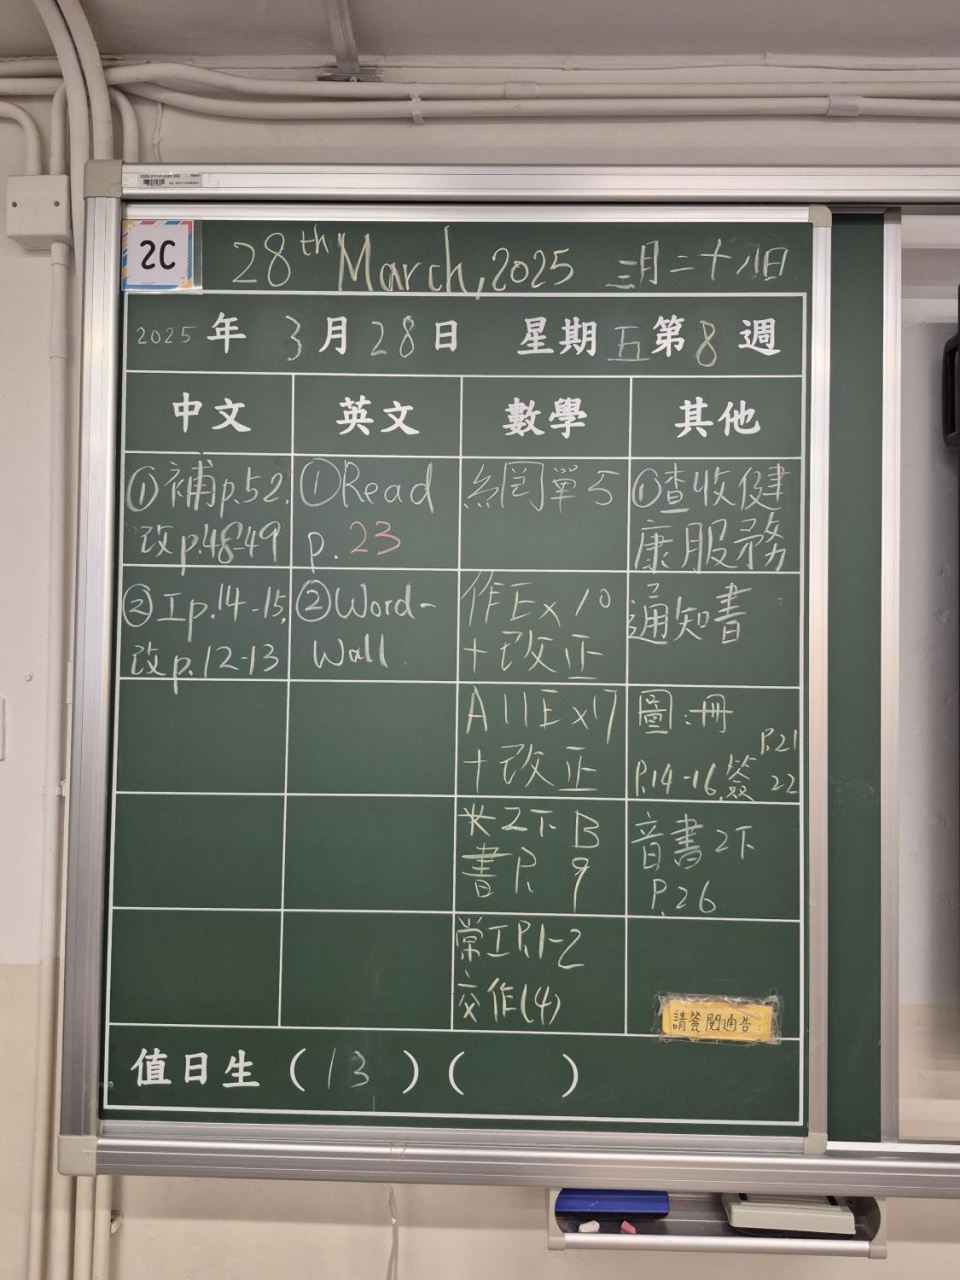 2C
28th March, 2025 三月二十八日
2025年3月28日 星期五第8週
中文 英文 數學 其他
①補p.52, ①Read 網單5 ①查收健
改p.48-49 p.23 康服務
②工p.14-15, ②Word- 作Ex10 通知書
改p.12-13 Wall +改正
A11Ex17 圖:冊
+改正 P.14-16,簽 P.21
22
2下B 音書2下
書P.9 P.26
常工P.1-2
交作(4)
請簽閱通告:
值日生(13)( )